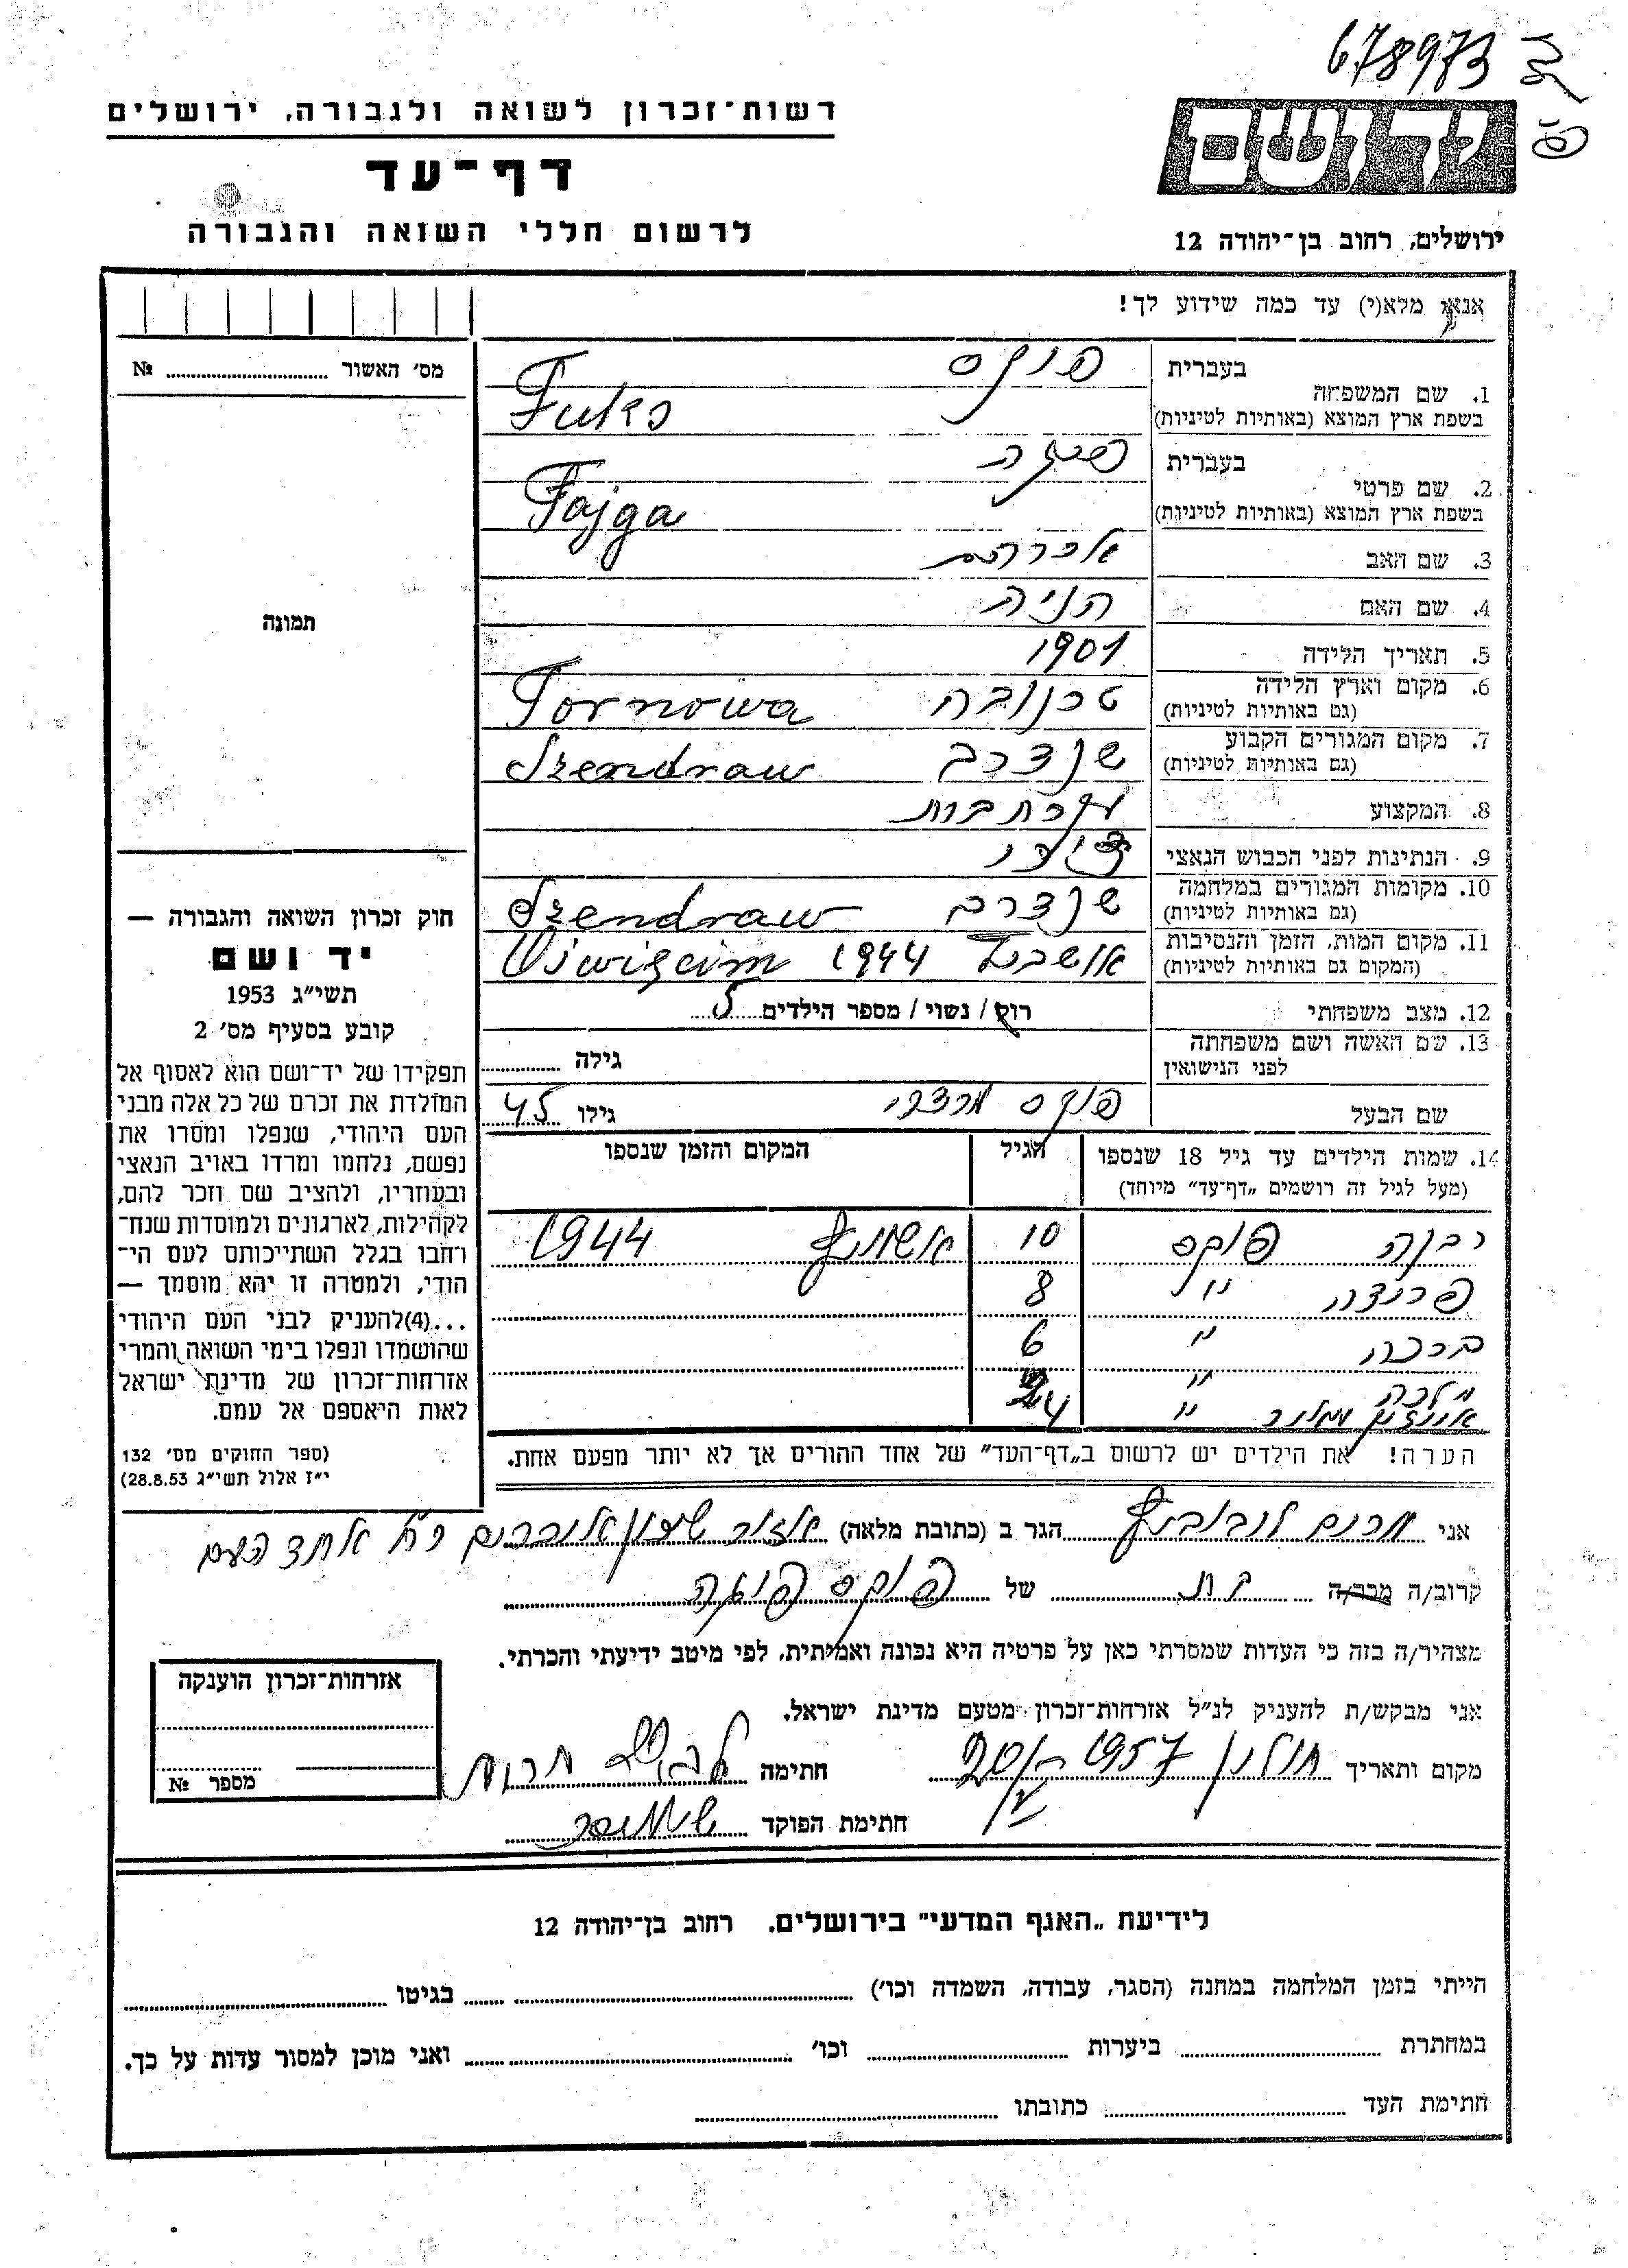 678973
רשות־זכרון לשואה ולגבורה, ירושלים
דף־עד
לרשום חללי השואה והגבורה
יד ושם
ירושלים, רחוב בן־יהודה 12
אנא, מלא(י) עד כמה שידוע לך!
מס׳ האשור № ....................
תמונה
1. שם המשפחה בעברית פוקס
בשפת ארץ המוצא (באותיות לטיניות) Fuks
2. שם פרטי בעברית פיגה
בשפת ארץ המוצא (באותיות לטיניות) Fajga
3. שם האב אברהם
4. שם האם חניה
5. תאריך הלידה 1901
6. מקום וארץ הלידה (גם באותיות לטיניות) טרנובה Tornowa
7. מקום המגורים הקבוע (גם באותיות לטיניות) שנדרב Szendraw
8. המקצוע עקרת בית
9. הנתינות לפני הכבוש הנאצי
10. מקומות המגורים במלחמה (גם באותיות לטיניות) שנדרב Szendraw
11. מקום המות, הזמן והנסיבות (המקום גם באותיות לטיניות) 1944
12. מצב משפחתי רוק / נשוי / מספר הילדים 5
13. שם האשה ושם משפחתה לפני הנישואין גילה ..........
שם הבעל פוקס גילו 45
14. שמות הילדים עד גיל 18 שנספו הגיל המקום והזמן שנספו
(מעל לגיל זה רושמים „דף־עד” מיוחד)
רבקה פוקס 10 אשויץ 1944
פרידה " 8
ברכה " 6
מלכה " 4
הערה! את הילדים יש לרשום ב„דף־העד” של אחד ההורים אך לא יותר מפעם אחת.
חוק זכרון השואה והגבורה —
יד ושם
תשי״ג 1953
קובע בסעיף מס׳ 2
תפקידו של יד־ושם הוא לאסוף אל
המולדת את זכרם של כל אלה מבני
העם היהודי, שנפלו ומסרו את
נפשם, נלחמו ומרדו באויב הנאצי
ובעוזריו, ולהציב שם וזכר להם,
לקהילות, לארגונים ולמוסדות שנח־
רחבו בגלל השתייכותם לעם הי־
הודי, ולמטרה זו יהא מוסמך —
...(4)להעניק לבני העם היהודי
שהושמדו ונפלו בימי השואה והמרי
אזרחות־זכרון של מדינת ישראל
לאות היאספם אל עמם.
(ספר החוקים מס׳ 132
י״ז אלול תשי״ג 28.8.53)
אני מרים ליבוביץ הגר ב (כתובת מלאה) אזור רח׳ אחד העם
קרוב/ה מכר/ה בת של פוקס פיגה
מצהיר/ה בזה כי העדות שמסרתי כאן על פרטיה היא נכונה ואמיתית, לפי מיטב ידיעתי והכרתי.
אני מבקש/ת להעניק לנ״ל אזרחות־זכרון מטעם מדינת ישראל.
מקום ותאריך חולון 1957 חתימה
חתימת הפוקד
אזרחות־זכרון הוענקה
מספר №
לידיעת „האגף המדעי” בירושלים. רחוב בן־יהודה 12
הייתי בזמן המלחמה במחנה (הסגר, עבודה, השמדה וכו׳) .................... בגיטו ....................
במחתרת .................... ביערות .................... וכו׳ .................... ואני מוכן למסור עדות על כך.
חתימת העד .................... כתובתו ....................